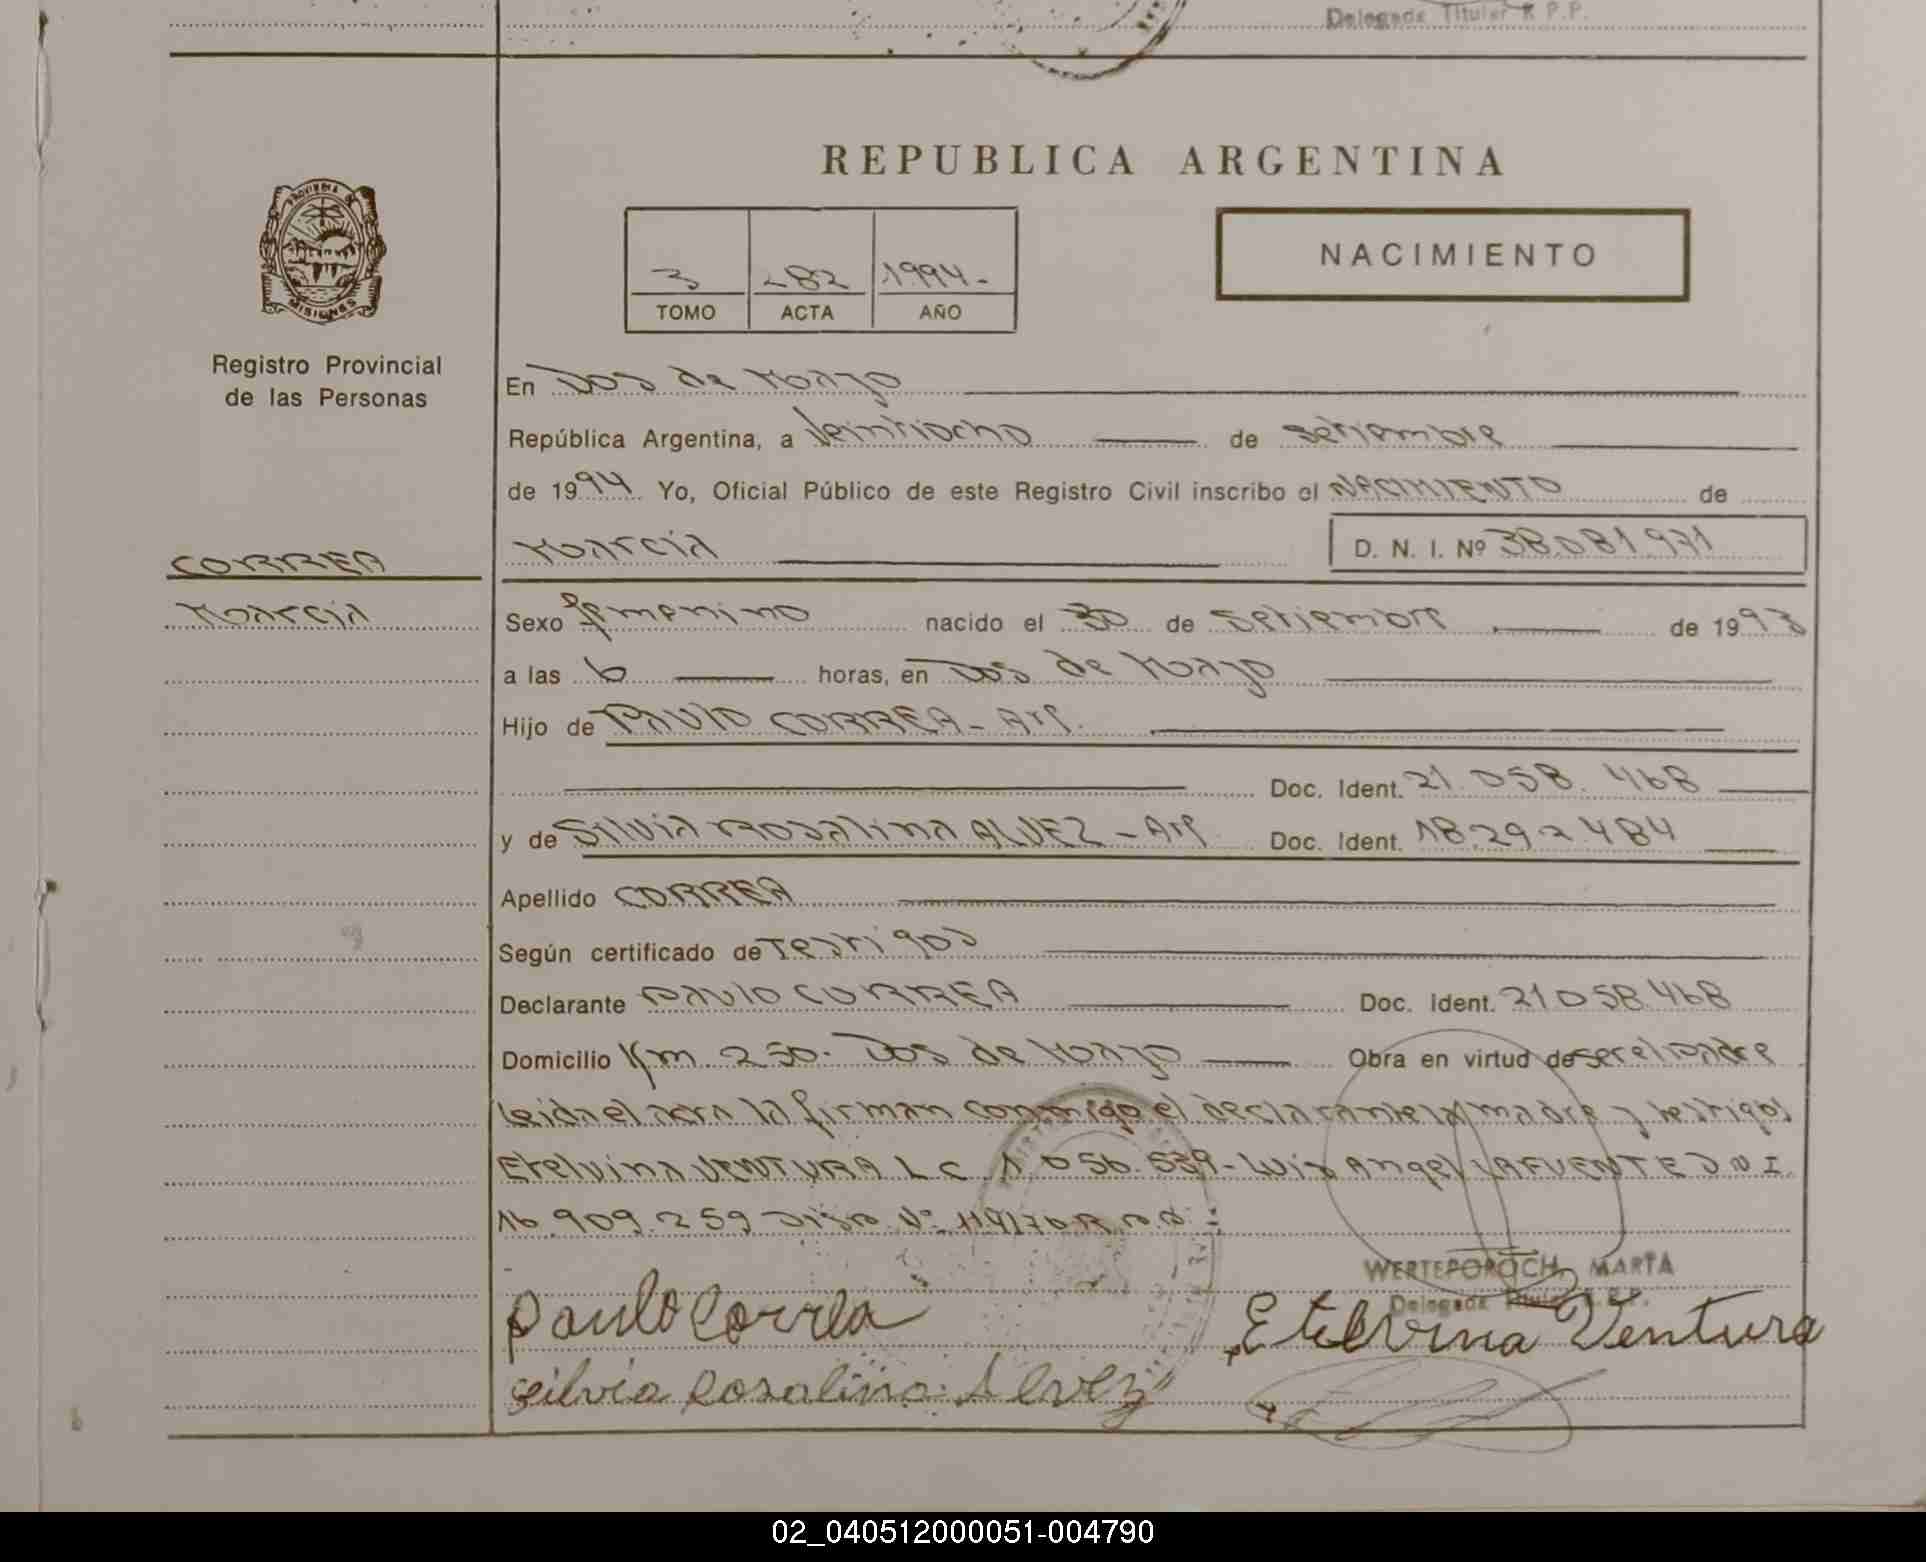 Delegada Titular R.P.P.
REPUBLICA ARGENTINA
PROVINCIA
MISIONES
3 282 1994-
TOMO ACTA AÑO
NACIMIENTO
Registro Provincial
de las Personas
En Dos de Mayo
República Argentina, a Veintiocho de setiembre
de 1994 Yo, Oficial Público de este Registro Civil inscribo el NACIMIENTO de
CORREA
Marcia
Marcia D. N. I. Nº 38.081.971
Sexo femenino nacido el 30 de Setiembre de 1993
a las 6 horas, en Dos de Mayo
Hijo de PAULO CORREA - Arg.
Doc. Ident. 21.058.468
y de Silvia Rosalina ALVEZ - Arg. Doc. Ident. 18.292.484
Apellido CORREA
Según certificado de Testigos
Declarante PAULO CORREA Doc. Ident. 21.058.468
Domicilio Km. 250. Dos de Mayo Obra en virtud de ser el padre
Leida el acta la firman conmigo el declarante la madre y testigos
Etelvina VENTURA L C 1.056.539 - Luis Angel LAFUENTE D.N.I.
16.909.259 Disp. Nº
WERTEPOROCH, MARTA
Delegada Titular R.P.P.
Paulo Correa
Etelvina Ventura
Silvia Rosalina Alvez
02_040512000051-004790